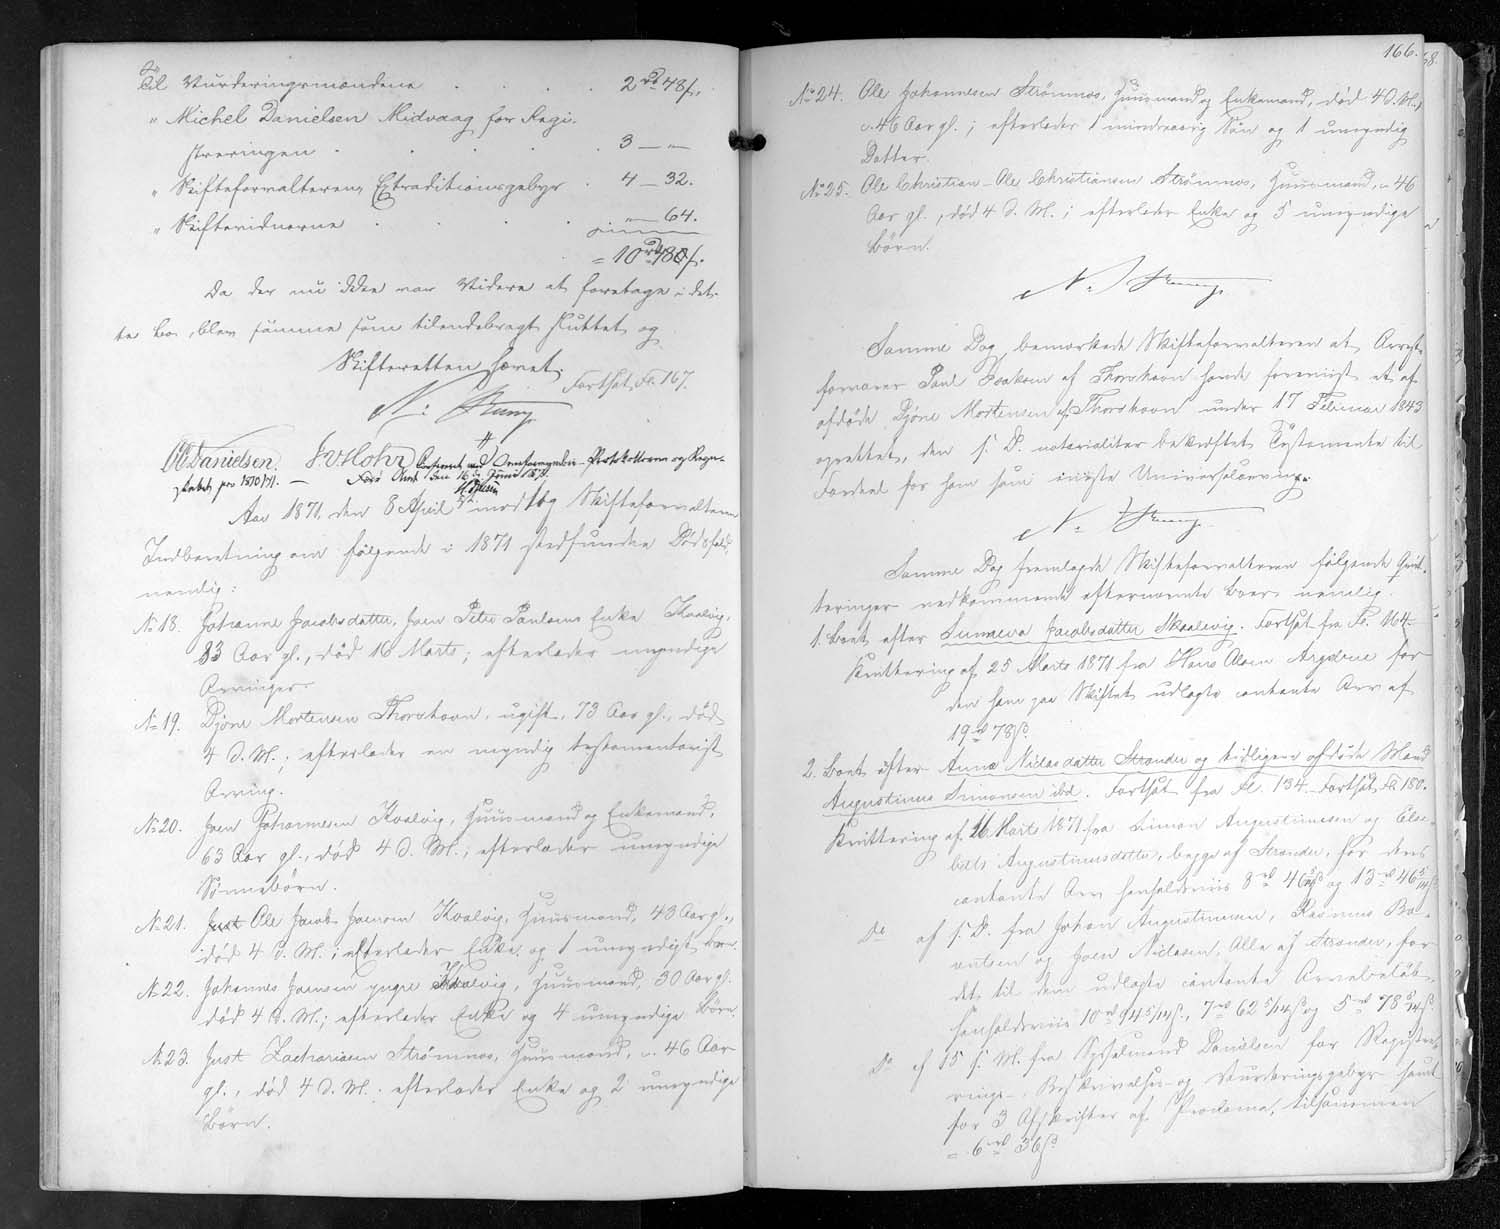 Til Vurderingsmændene . . . . 2 rd 48 s.
" Michel Danielsen Midvaag for Regi-
streringen . . . . . 3 — "—
" Skifteforvalterens Extraditionsgebyr . 4 — 32.
" Skiftevidnerne . . . . "— 64.
= 10 rd
Da der nu ikke var Videre at foretage i det-
te Bo, blev samme som tilendebragt sluttet og
Skifteretten hævet.
Fortsat Fo. 167.
Danielsen.
Confereret med Overformynderi-Protokollerne og Regn-
skabet pro 1870/71. — Færø Amt den 16 Juni 1871.
Aar 1871, den 8 April modtog Skifteforvalteren
Indberetning om følgende i 1871 stedfundne Dødsfald,
nemlig:
No 18. Johanne Jacobsdatter, Joen Peter Poulsens Enke Kvalvig,
83 Aar gl., død 16 Marts; efterlader myndige
Arvinger.
No 19. Djone Mortensen Thorshavn, ugift, 73 Aar gl., død
4 d. M.; efterlader en myndig testamentarisk
Arving.
No 20. Joen Johannesen Kvalvig, Huusmand og Enkemand,
63 Aar gl., død 4 d. M.; efterlader umyndige
Sønnebørn.
No 21. Just Ole Jacob Joensen Kvalvig, Huusmand, 43 Aar gl.,
død 4 d. M.; efterlader Enke og 1 umyndigt Barn.
No 22. Johannes Joensen yngre Kvalvig, Huusmand, 30 Aar gl.
død 4 d. M.; efterlader Enke og 4 umyndige Børn.
No 23. Just Zachariasen Strømnæs, Huusmand, c. 46 Aar
gl., død 4 d. M. efterlader Enke og 2 umyndige
Børn.
166.
No 24. Ole Johannesen Strømnæs, Huusmand og Enkemand, død 4 d. M.,
c. 46 Aar gl.; efterlader 1 mindreaarig Søn og 1 umyndig
Datter.
No 25. Ole Christian Ole Christiansen Strømnæs, Huusmand, c. 46
Aar gl., død 4 d. M.; efterlader Enke og 5 umyndige
Børn.
Samme Dag bemærkede Skifteforvalteren at Arrest-
forvarer Poul Isaksen af Thorshavn havde foreviist et af
afdøde Djone Mortensen af Thorshavn under 17 Februar 1843
oprettet, den s. D. notarialiter bekræftet Testamente til
Fordeel for ham som eneste Universalarving.
Samme Dag fremlagde Skifteforvalteren følgende Qvit-
teringer vedkommende efternævnte Boer, nemlig.
1. Boet efter Sunneva Jacobsdatter Skaalevig. Fortsat fra Fo. 164
Kvittering af 25 Marts 1871 fra Hans Olsen for
den ham paa Skiftet udlagte contante Arv af
19 rd 78 s.
2. Boet efter Anna Niclasdatter Strander og tidligere afdøde Mand
Augustinus Simonsen ibd. Fortsat fra Fol. 134. Fortsat Fo. 180.
Kvittering af 26 Marts 1871 fra Simon Augustinussen og Else-
beth Augustinusdatter, begge af Strander, for deres
contante Arv henholdsviis 8 rd 46 s og 13 rd 46 s
Do af s. D. fra Johan Augustinussen, Rasmus
og Joen Niclasen, Alle af Strander, for
det, til dem udlagte contante Arvebeløb
henholdsviis 10 rd 94 5/14 s., 7 rd 62 5/14 s og 5 rd 78 5/14 s.
Do af 15 s. M. fra Sysselmand Danielsen for Registre-
rings-, Beskrivelses- og Vurderingsgebyr samt
for 3 Afskrifter af Proclama, tilsammen
= 6 rd 36 s.